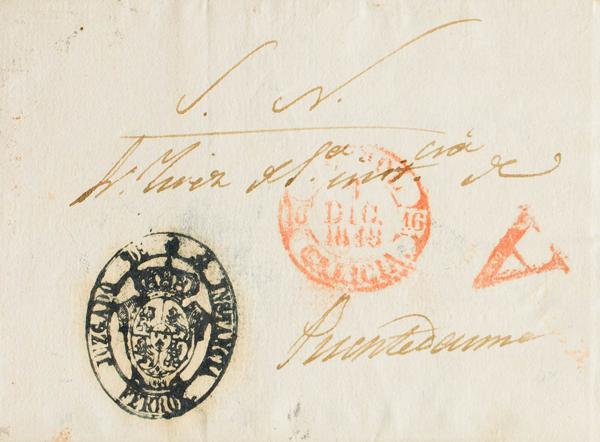 S. N.
Sr. Juez de 1ª. inst.cia de
Puentedeume
DIC.
1848
GALICIA
16
JUZGADO DE 1ª INSTANCIA
FERROL